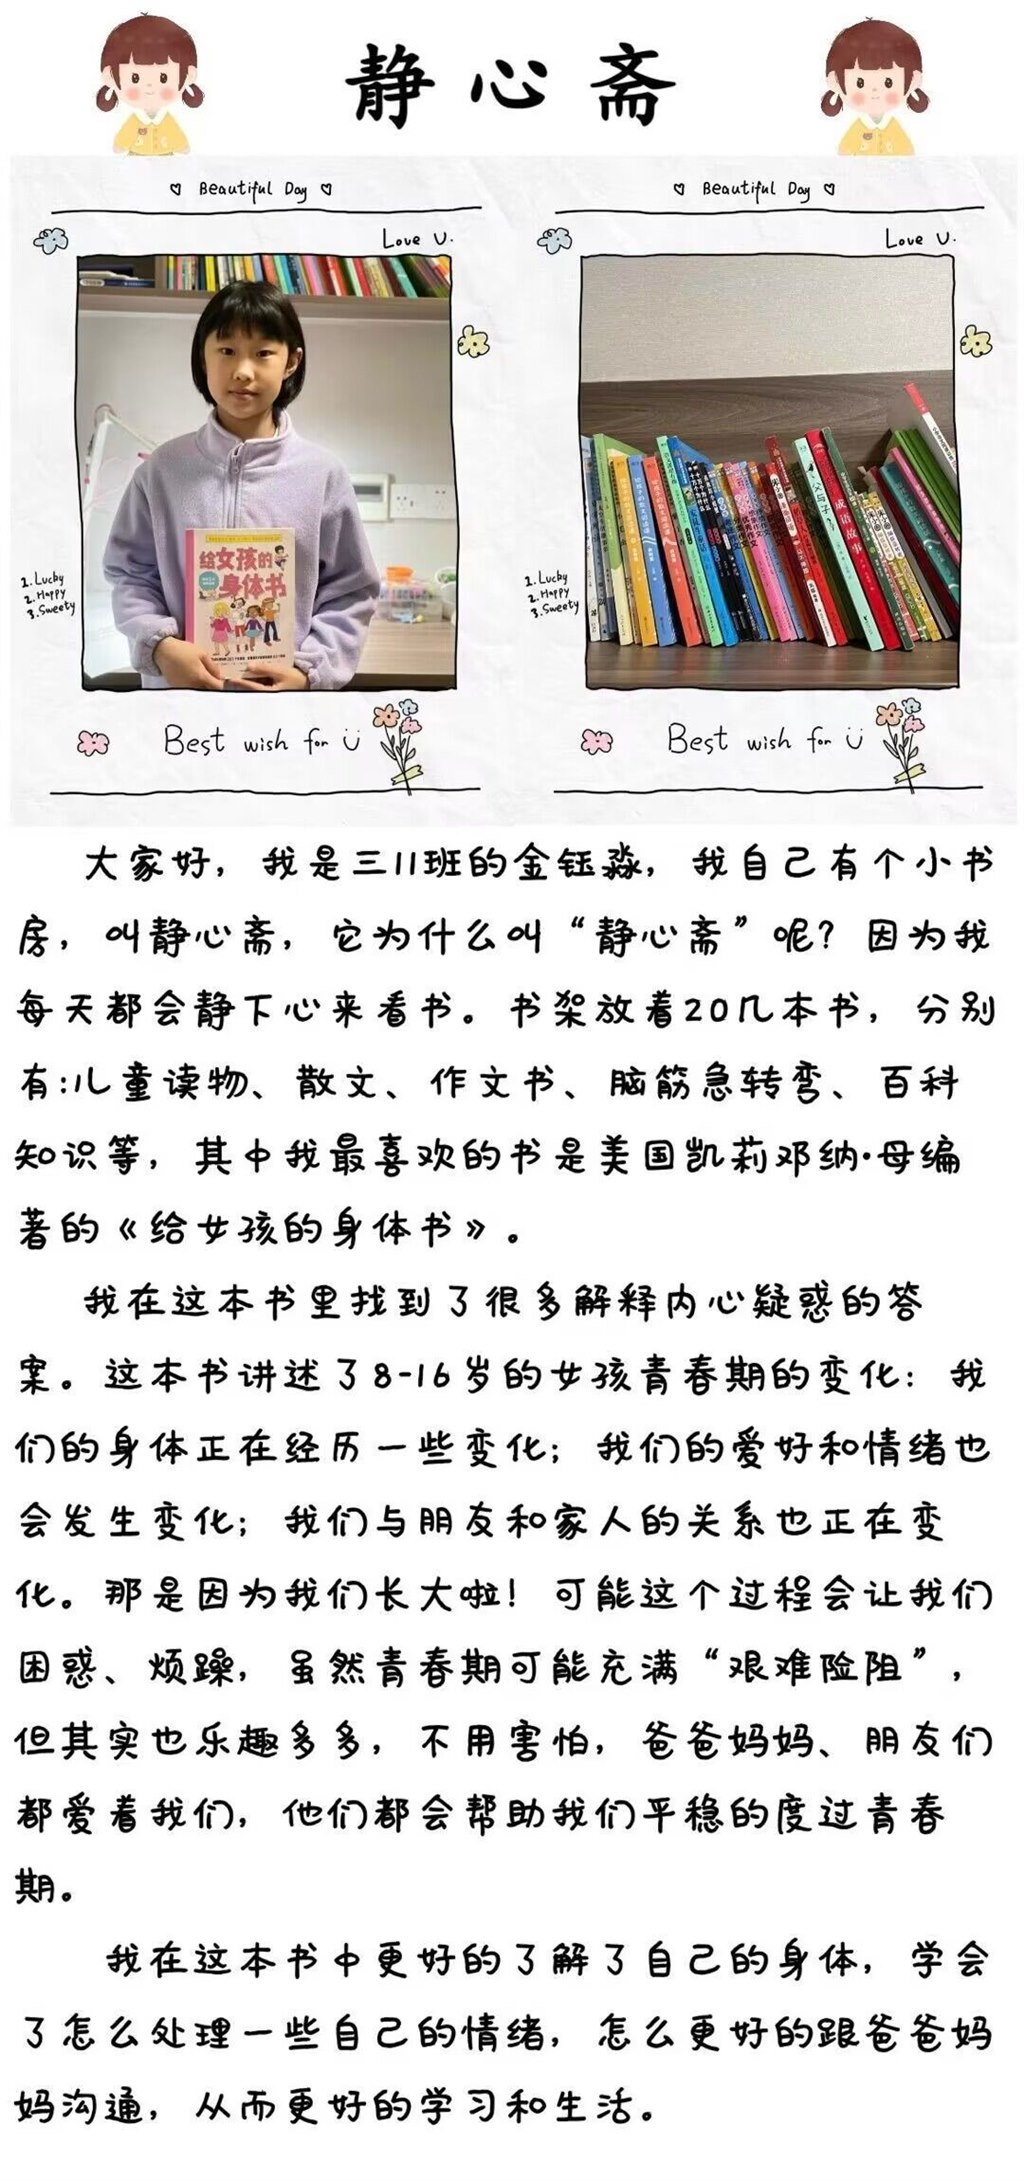 静心斋
Beautiful Day
Love U.
1. Lucky
2. Happy
3. Sweety
给女孩的
身体书
Best wish for U
Beautiful Day
Love U.
1. Lucky
2. Happy
3. Sweety
父与子
成语故事
Best wish for U
大家好，我是三11班的金钰淼，我自己有个小书
房，叫静心斋，它为什么叫“静心斋”呢？因为我
每天都会静下心来看书。书架放着20几本书，分别
有:儿童读物、散文、作文书、脑筋急转弯、百科
知识等，其中我最喜欢的书是美国凯莉邓纳·母编
著的《给女孩的身体书》。
我在这本书里找到了很多解释内心疑惑的答
案。这本书讲述了8-16岁的女孩青春期的变化：我
们的身体正在经历一些变化；我们的爱好和情绪也
会发生变化；我们与朋友和家人的关系也正在变
化。那是因为我们长大啦！可能这个过程会让我们
困惑、烦躁，虽然青春期可能充满“艰难险阻”，
但其实也乐趣多多，不用害怕，爸爸妈妈、朋友们
都爱着我们，他们都会帮助我们平稳的度过青春
期。
我在这本书中更好的了解了自己的身体，学会
了怎么处理一些自己的情绪，怎么更好的跟爸爸妈
妈沟通，从而更好的学习和生活。